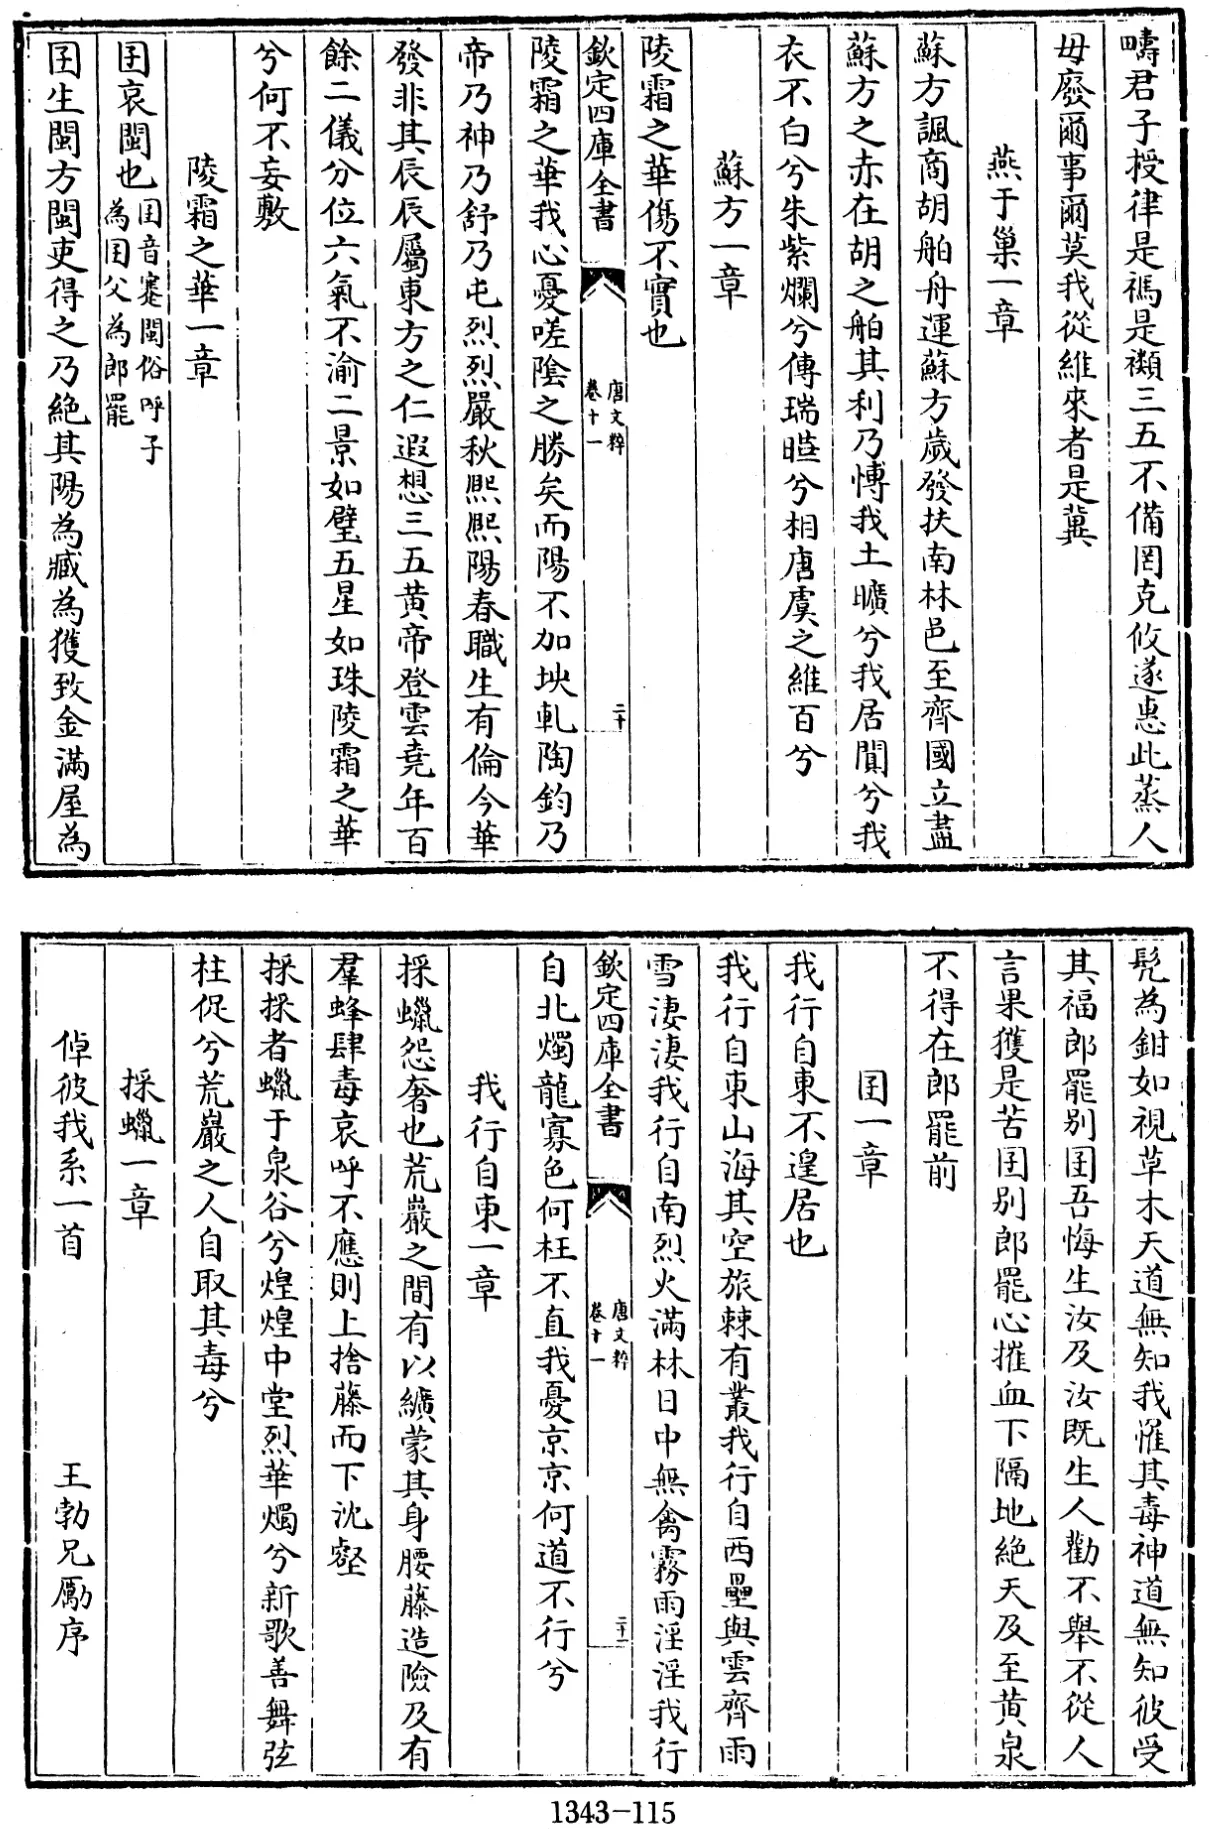 疇君子授律是禡是禷三五不備罔克攸遂惠此蒸人
毋廢爾事爾莫我從維來者是冀
燕于巢一章
蘇方諷商胡舶舟運蘇方歲發扶南林邑至齊國立盡
蘇方之赤在胡之舶其利乃博我土曠兮我居闃兮我
衣不白兮朱紫爛兮傳瑞曄兮相唐虞之維百兮
蘇方一章
陵霜之華傷不實也
欽定四庫全書
唐文粹
卷十一
二十
陵霜之華我心憂嗟陰之勝矣而陽不加坱軋陶鈞乃
帝乃神乃舒乃屯烈烈嚴秋熙熙陽春職生有倫今華
發非其辰辰屬東方之仁遐想三五黄帝登雲堯年百
餘二儀分位六氣不渝二景如璧五星如珠陵霜之華
兮何不妄敷
陵霜之華一章
囝哀閩也囝音蹇閩俗呼子
為囝父為郎罷
囝生閩方閩吏得之乃絶其陽為臧為獲致金滿屋為
髡為鉗如視草木天道無知我罹其毒神道無知彼受
其福郎罷别囝吾悔生汝及汝既生人勸不舉不從人
言果獲是苦囝别郎罷心摧血下隔地絶天及至黄泉
不得在郎罷前
囝一章
我行自東不遑居也
我行自東山海其空旅棘有叢我行自西壘與雲齊雨
雪淒淒我行自南烈火滿林日中無禽霧雨淫淫我行
欽定四庫全書
唐文粹
卷十一
二十一
自北燭龍寡色何枉不直我憂京京何道不行兮
我行自東一章
採蠟怨奢也荒巖之間有以纊蒙其身腰藤造險及有
羣蜂肆毒哀呼不應則上捨藤而下沈壑
採採者蠟于泉谷兮煌煌中堂烈華燭兮新歌善舞弦
柱促兮荒巖之人自取其毒兮
採蠟一章
倬彼我系一首 王勃兄勵序
1343-115